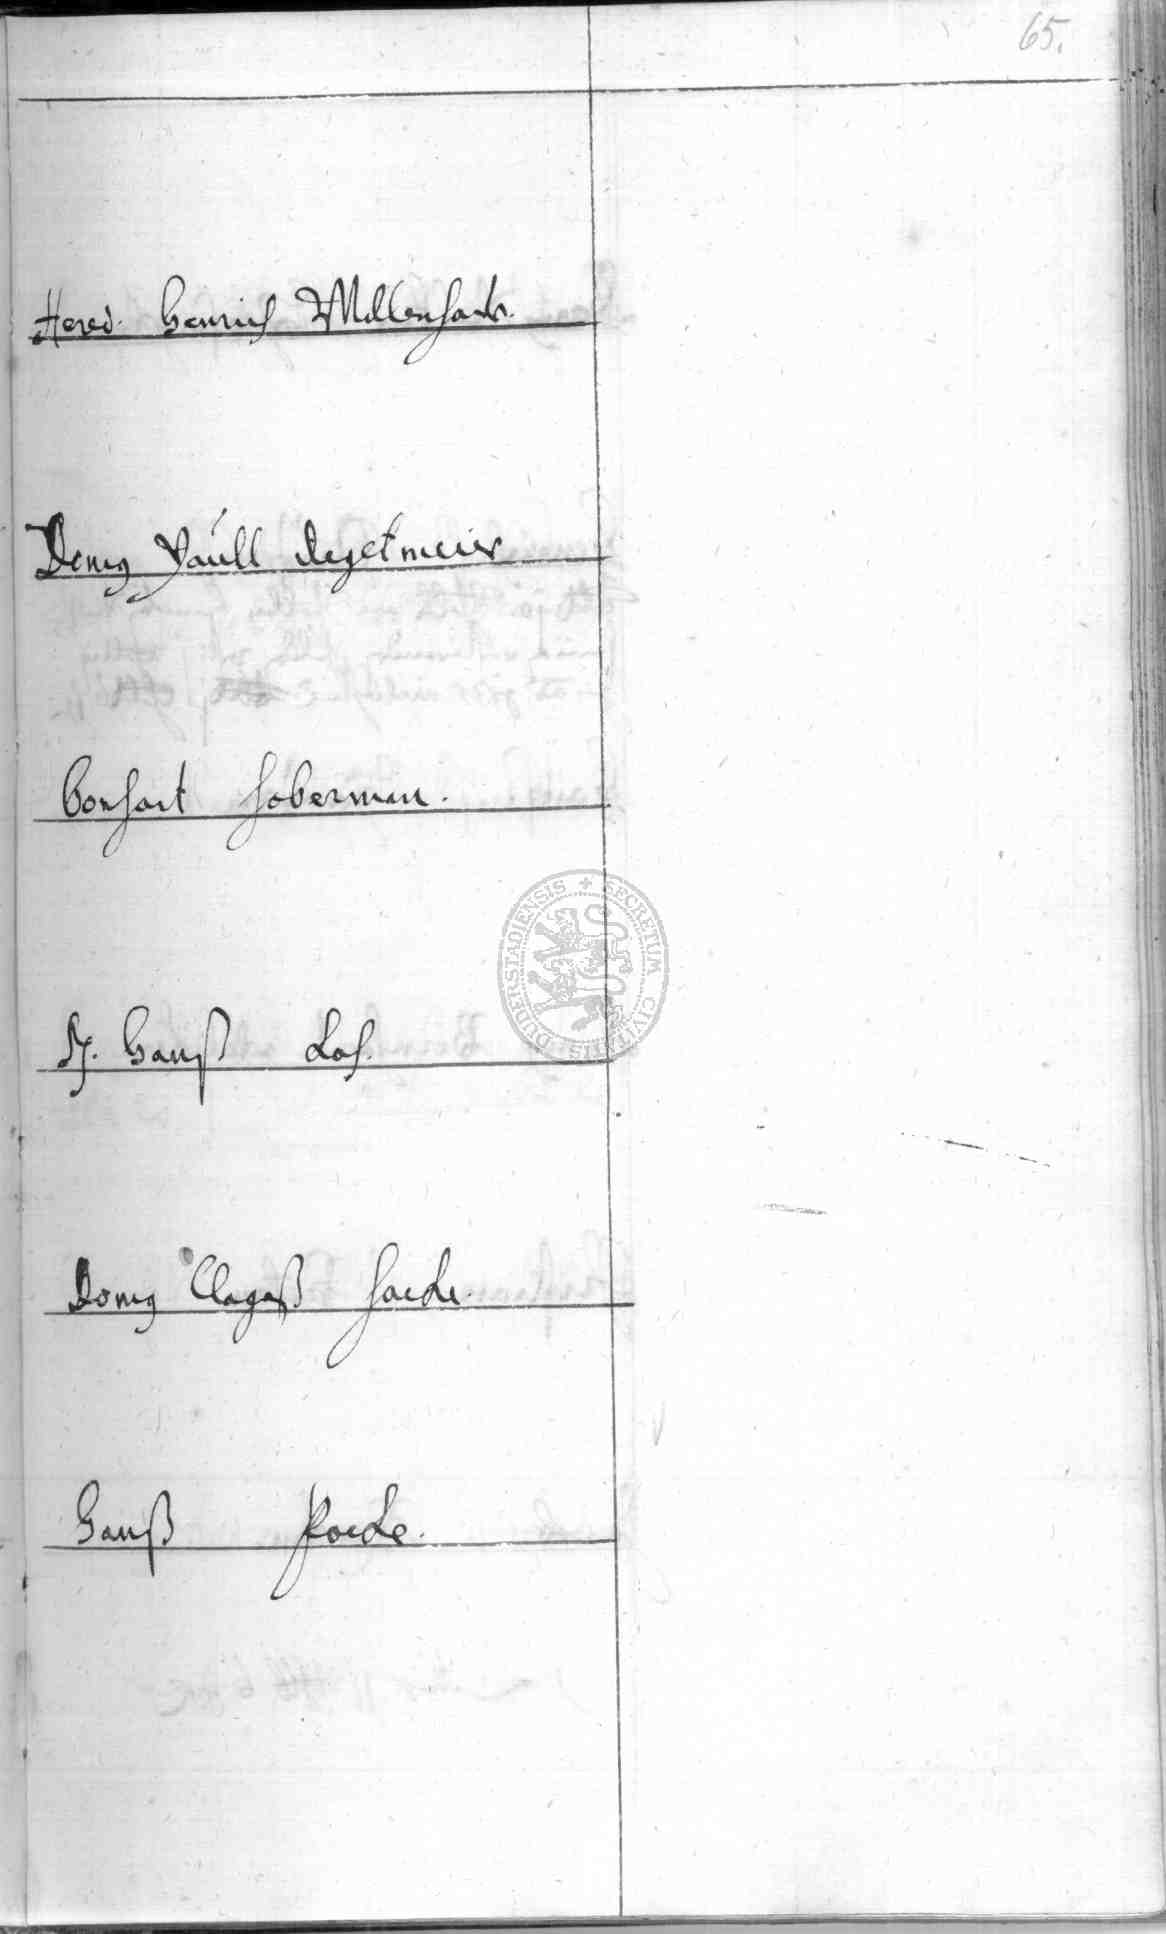 65.
Hered. Henrich Millenhanß.
Domg Paull degetmeier
Conhart Hoberman.
H. Hanß Loh.
Domg Clagaß Hacke.
Hanß Kocke.
SECRETUM CIVITATIS DUDERSTADIENSIS